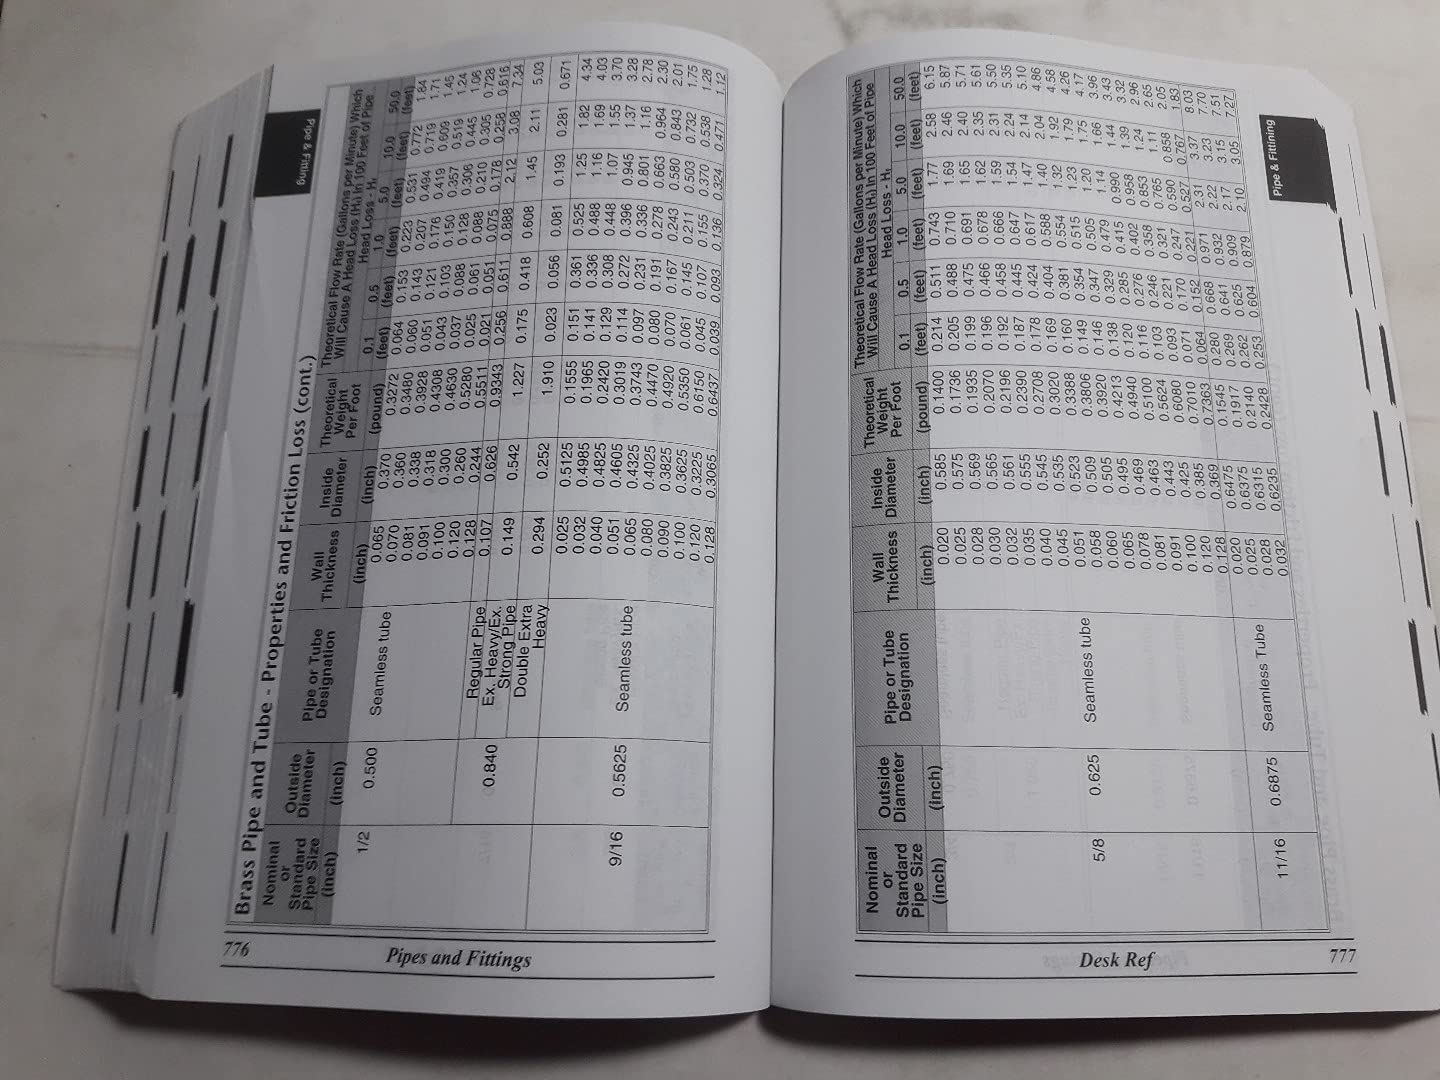 Pipe & Fitting
Brass Pipe and Tube - Properties and Friction Loss (cont.)
Nominal or Standard Pipe Size (inch) Outside Diameter (inch) Pipe or Tube Designation Wall Thickness (inch) Inside Diameter (inch) Theoretical Weight Per Foot (pound) Theoretical Flow Rate (Gallons per Minute) Which Will Cause A Head Loss (Hf) In 100 Feet of Pipe
Head Loss - Hf
0.1 (feet) 0.5 (feet) 1.0 (feet) 5.0 (feet) 10.0 (feet) 50.0 (feet)
1/2 0.500 Seamless tube 0.065 0.370 0.3272 0.064 0.153 0.223 0.531 0.772 1.84
0.070 0.360 0.3480 0.060 0.143 0.207 0.494 0.719 1.71
0.081 0.338 0.3928 0.051 0.121 0.176 0.419 0.609 1.45
0.091 0.318 0.4308 0.043 0.103 0.150 0.357 0.519 1.24
0.100 0.300 0.4630 0.037 0.088 0.128 0.306 0.445 1.06
0.120 0.260 0.5280 0.025 0.061 0.088 0.210 0.305 0.728
0.128 0.244 0.5511 0.021 0.051 0.075 0.178 0.258 0.616
0.840 Regular Pipe 0.107 0.626 0.9343 0.256 0.611 0.888 2.12 3.08 7.34
Ex. Heavy/Ex. Strong Pipe 0.149 0.542 1.227 0.175 0.418 0.608 1.45 2.11 5.03
Double Extra Heavy 0.294 0.252 1.910 0.023 0.056 0.081 0.193 0.281 0.671
9/16 0.5625 Seamless tube 0.025 0.5125 0.1555 0.151 0.361 0.525 1.25 1.82 4.34
0.032 0.4985 0.1965 0.141 0.336 0.488 1.16 1.69 4.03
0.040 0.4825 0.2420 0.129 0.308 0.448 1.07 1.55 3.70
0.051 0.4605 0.3019 0.114 0.272 0.396 0.945 1.37 3.28
0.065 0.4325 0.3743 0.097 0.231 0.336 0.801 1.16 2.78
0.080 0.4025 0.4470 0.080 0.191 0.278 0.663 0.964 2.30
0.090 0.3825 0.4920 0.070 0.167 0.243 0.580 0.843 2.01
0.100 0.3625 0.5350 0.061 0.145 0.211 0.503 0.732 1.75
0.120 0.3225 0.6150 0.045 0.107 0.155 0.370 0.538 1.28
0.128 0.3065 0.6437 0.039 0.093 0.136 0.324 0.471 1.12
776
Pipes and Fittings
Nominal or Standard Pipe Size (inch) Outside Diameter (inch) Pipe or Tube Designation Wall Thickness (inch) Inside Diameter (inch) Theoretical Weight Per Foot (pound) Theoretical Flow Rate (Gallons per Minute) Which Will Cause A Head Loss (Hf) In 100 Feet of Pipe
Head Loss - Hf
0.1 (feet) 0.5 (feet) 1.0 (feet) 5.0 (feet) 10.0 (feet) 50.0 (feet)
5/8 0.625 Seamless tube 0.020 0.585 0.1400 0.214 0.511 0.743 1.77 2.58 6.15
0.025 0.575 0.1736 0.205 0.488 0.710 1.69 2.46 5.87
0.028 0.569 0.1935 0.199 0.475 0.691 1.65 2.40 5.71
0.030 0.565 0.2070 0.196 0.466 0.678 1.62 2.35 5.61
0.032 0.561 0.2196 0.192 0.458 0.666 1.59 2.31 5.50
0.035 0.555 0.2390 0.187 0.445 0.647 1.54 2.24 5.35
0.040 0.545 0.2708 0.178 0.424 0.617 1.47 2.14 5.10
0.045 0.535 0.3020 0.169 0.404 0.588 1.40 2.04 4.86
0.051 0.523 0.3388 0.160 0.381 0.554 1.32 1.92 4.58
0.058 0.509 0.3806 0.149 0.354 0.515 1.23 1.79 4.26
0.060 0.505 0.3920 0.146 0.347 0.505 1.20 1.75 4.17
0.065 0.495 0.4213 0.138 0.329 0.479 1.14 1.66 3.96
0.078 0.469 0.4940 0.120 0.285 0.415 0.990 1.44 3.43
0.081 0.463 0.5100 0.116 0.276 0.402 0.958 1.39 3.32
0.091 0.443 0.5624 0.103 0.246 0.358 0.853 1.24 2.96
0.100 0.425 0.6080 0.093 0.221 0.321 0.765 1.11 2.65
0.120 0.385 0.7010 0.071 0.170 0.247 0.590 0.858 2.05
0.128 0.369 0.7363 0.064 0.152 0.221 0.527 0.767 1.83
11/16 0.6875 Seamless Tube 0.020 0.6475 0.1545 0.280 0.668 0.971 2.31 3.37 8.03
0.025 0.6375 0.1917 0.269 0.641 0.932 2.22 3.23 7.70
0.028 0.6315 0.2140 0.262 0.625 0.909 2.17 3.15 7.51
0.032 0.6235 0.2428 0.253 0.604 0.879 2.10 3.05 7.27
Pipe & Fittining
Desk Ref
777